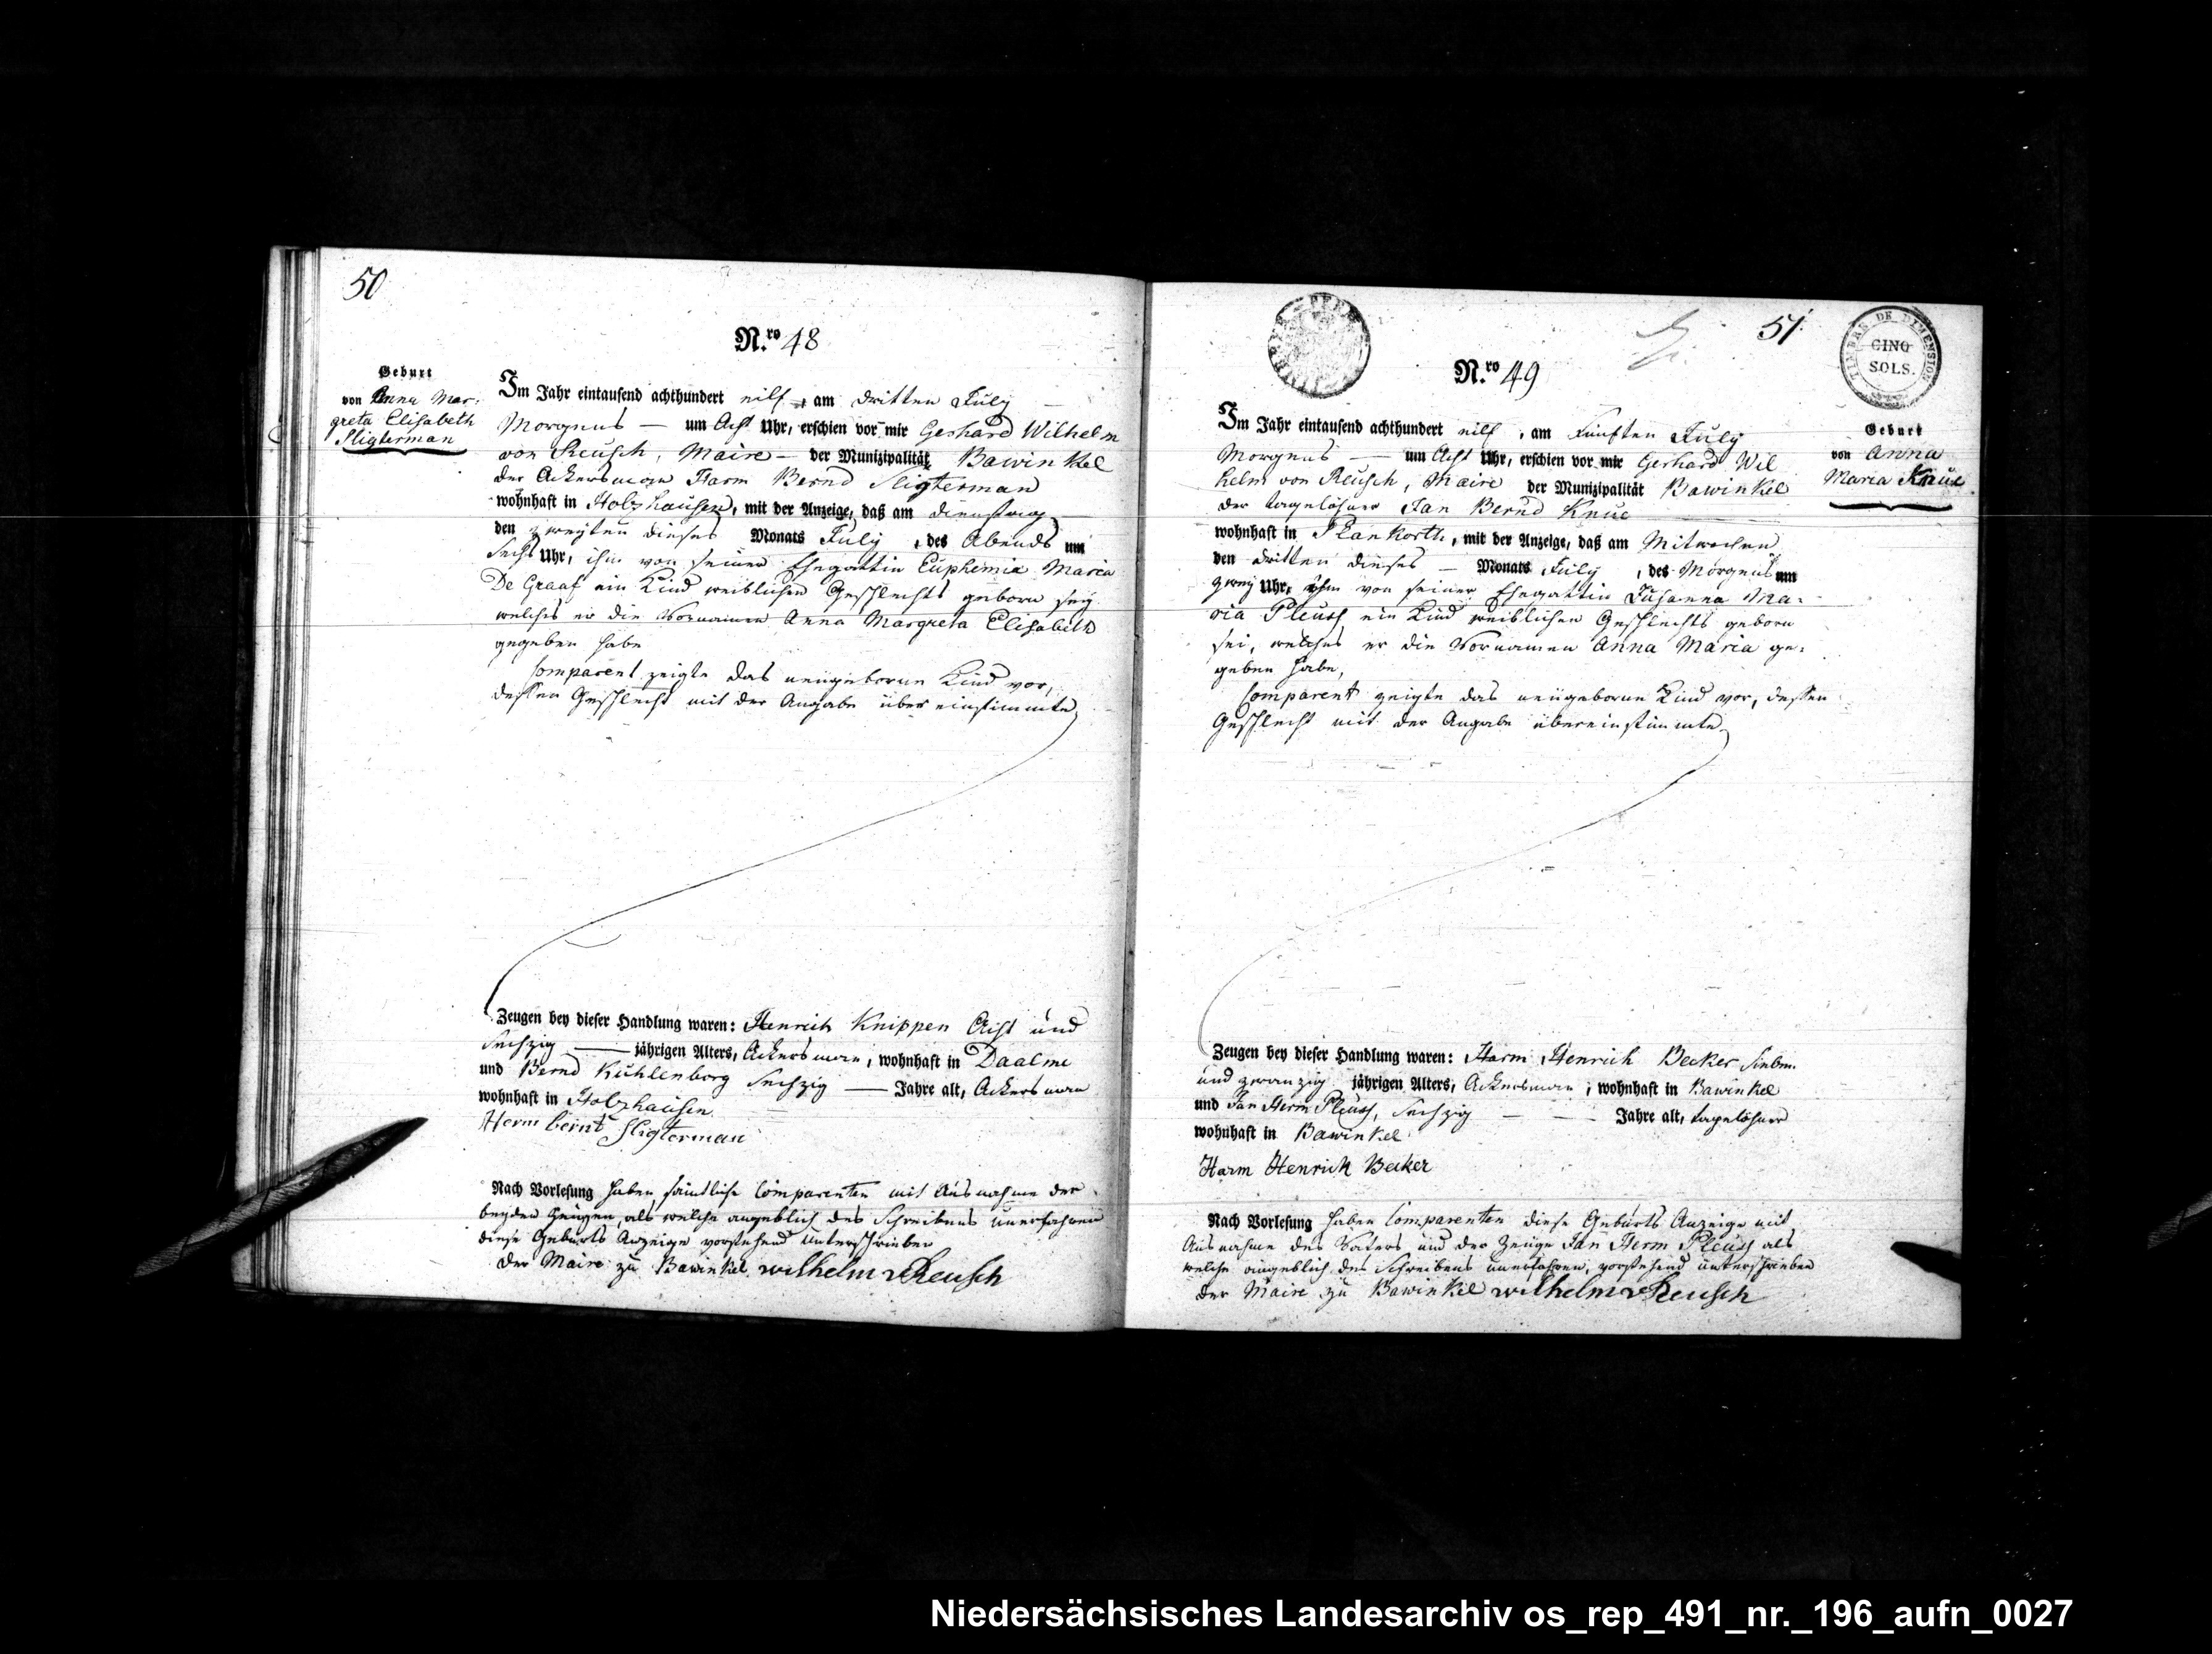 50
N.ro 48
Geburt
von Anna Mar-
greta Elisabeth
Sligterman
Im Jahr eintausend achthundert eilf, am dritten July
Morgens — um Acht Uhr, erschien vor mir Gerhard Wilhelm
von Reusch, Maire — der Munizipalität Bawinkel
der Ackersman Harm Bernd Sligterman
wohnhaft in Holzhausen, mit der Anzeige, daß am dienstag
den zweyten dieses Monats July, des Abends um
sechs Uhr, ihm von seiner Ehegattin Euphemia Maria
De Graaf ein Kind weiblichen Geschlechts geboren sey
welches er die Vornamen Anna Margreta Elisabeth
gegeben habe
Comparent zeigte das neugeborne Kind vor,
dessen Geschlecht mit der Angabe übereinstimmte
Zeugen bey dieser Handlung waren: Henrich Knippen Acht und
sechzig — jährigen Alters, Ackersman, wohnhaft in Daalme
und Bernd Kuhlenborg sechzig — Jahre alt, Ackersman
wohnhaft in Holzhausen
Herm bernt Sligterman
Nach Vorlesung haben sämtliche Comparenten mit Ausnahme der
beyden Zeugen, als welche angeblich des Schreibens unerfahren
diese Geburts Anzeige vorstehend unterschrieben
Der Maire zu Bawinkel wilhelm v Reusch
51
TIMBRE DE DIMENSION
CINQ
SOLS.
N.ro 49
Geburt
von Anna
Maria Knüe
Im Jahr eintausend achthundert eilf, am Fünften July
Morgens — um Acht Uhr, erschien vor mir Gerhard Wil
helm von Reusch, Maire der Munizipalität Bawinkel
der tagelöhner Jan Bernd Knüe
wohnhaft in Plankorth, mit der Anzeige, daß am Mitwochen
den dritten dieses — Monats July, des Morgens um
zwey Uhr, ihm von seiner Ehegattin Susanna Ma-
ria Pleuss ein Kind weiblichen Geschlechts geboren
sei, welches er die Vornamen Anna Maria ge-
geben habe,
Comparent zeigte das neugeborne Kind vor, dessen
Geschlecht mit der Angabe übereinstimmte
Zeugen bey dieser Handlung waren: Harm Henrich Becker sieben
und zwanzig jährigen Alters, Ackersman, wohnhaft in Bawinkel
und Jan Herm Pleuss, sechzig — Jahre alt, tagelöhner
wohnhaft in Bawinkel
Harm Henrich Becker
Nach Vorlesung haben Comparenten diese Geburts Anzeige mit
Ausnahme des Vaters und der Zeuge Jan Herm Pleuss als
welche angeblich des Schreibens unerfahren, vorstehend unterschrieben
der Maire zu Bawinkel wilhelm v Reusch
Niedersächsisches Landesarchiv os_rep_491_nr._196_aufn_0027